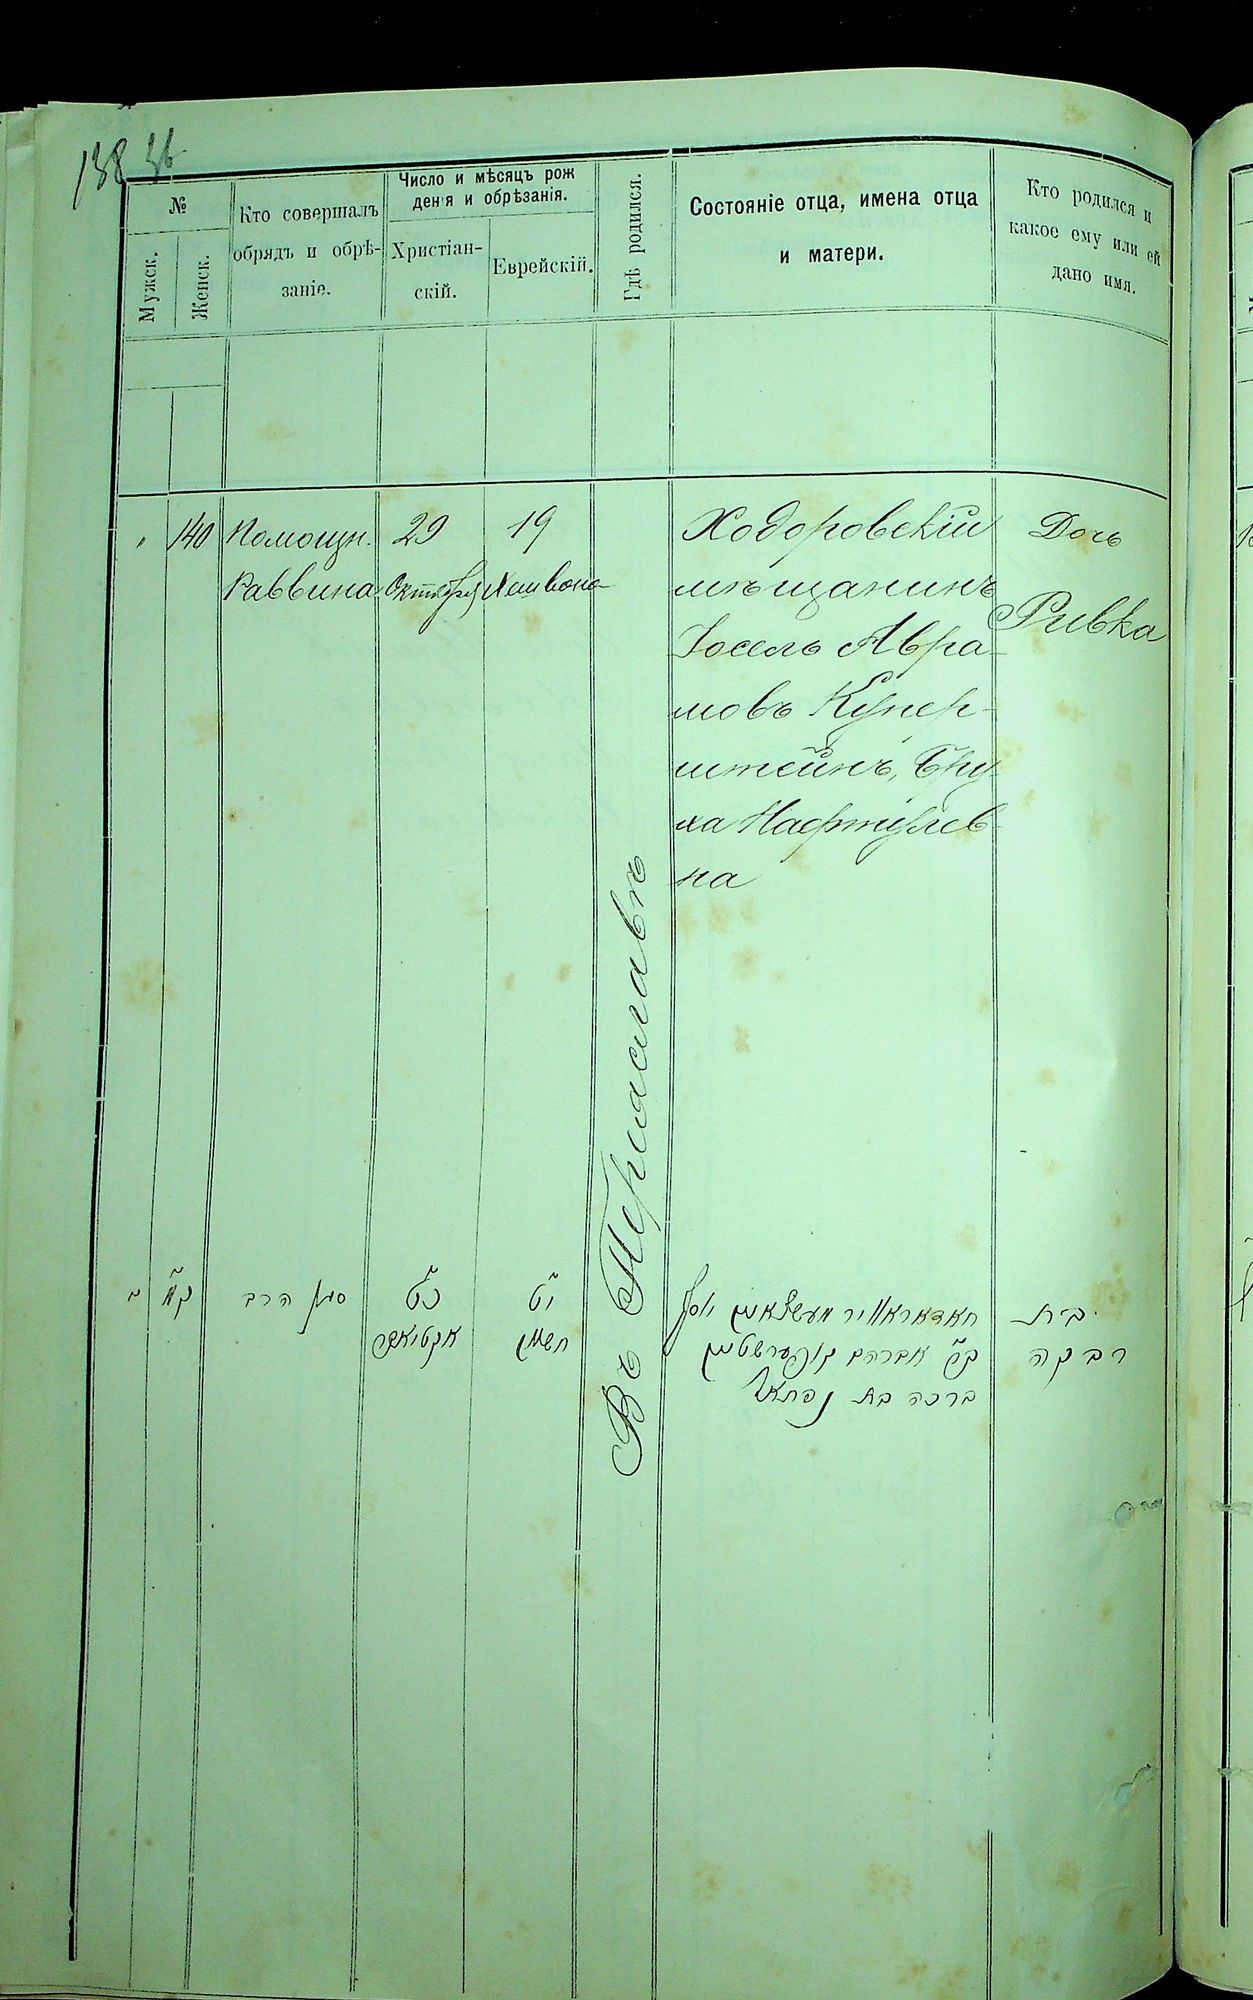 138 зв.
№
Мужск.
Женск.
Кто совершалъ
обрядъ и обрѣ-
заніе.
Число и мѣсяцъ рож
денія и обрѣзанія.
Христіан-
скій.
Еврейскій.
Гдѣ родился.
Состояніе отца, имена отца
и матери.
Кто родился и
какое ему или ей
дано имя.
"
140
Помощн.
Раввина
29
Октября
19
Хешвона
Въ Переяславѣ
Ходоровскій
мѣщанинъ
Іосель Авра-
мовъ Купер-
штейнъ, Бру-
ха Нафтулев-
на
Дочь
Ривка
ק״מ
סגן הרב
כ״ט
אקטיאבר
י״ט
חשון
יוסף
ב״ר אברהם קופערשטיין
ברכה בת נפתלי
בית
רבקה